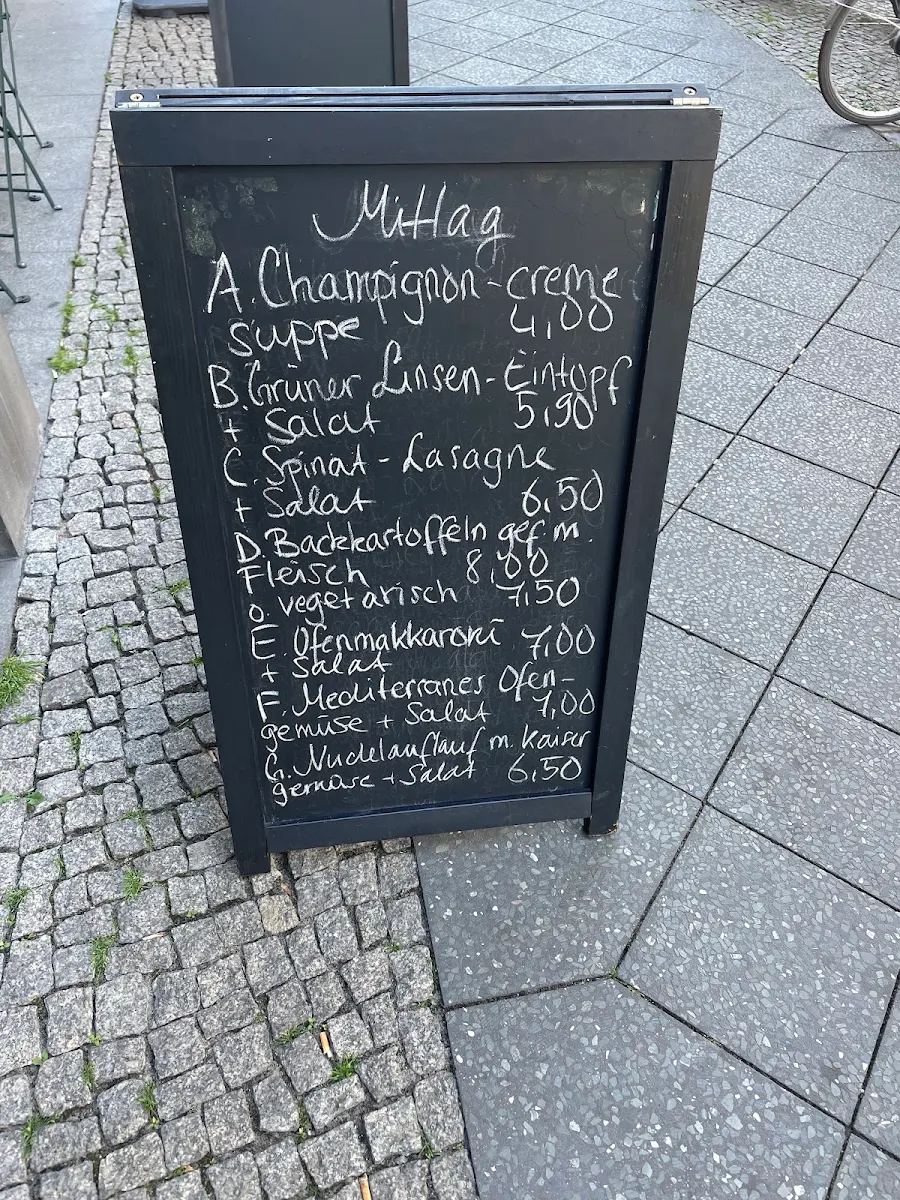 Mittag
A. Champignon-creme
suppe 4,00
B. Grüner Linsen-Eintopf
+ Salat 5,90
C. Spinat-Lasagne
+ Salat 6,50
D. Backkartoffeln gef. m.
Fleisch 8,00
o. vegetarisch 7,50
E. Ofenmakkaroni 7,00
+ Salat
F. Mediterranes Ofen-
gemüse + Salat 7,00
G. Nudelauflauf m. Kaiser
gemüse + Salat 6,50